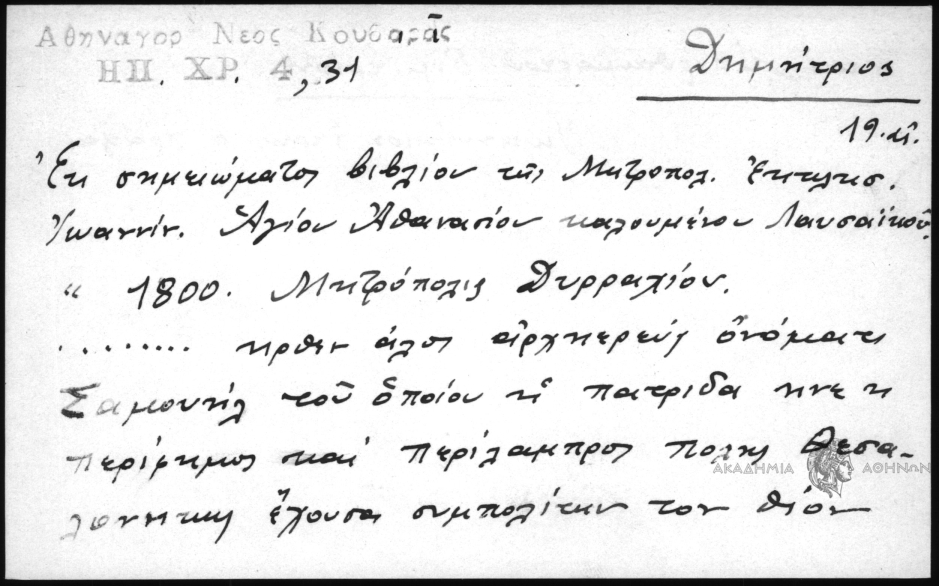 Αθηναγορ Νεος Κουβαρᾶς
ΗΠ. ΧΡ. 4, 31
Δημήτριος
19. αἰ.
Ἐκ σημειώματος βιβλίου τῆς Μητροπολ. Ἐκκλησ.
Ἰωαννίν. Ἁγίου Ἀθανασίου καλουμένου Λαυσαϊκοῦ.
“ 1800. Μητρόπολις Δυρραχίου.
......... ηρθεν άλος ἀρχηερεύς ὀνόματι
Σαμουήλ τοῦ ὁποίου ἡ πατριδα ηνε η
περίφημος καὶ περίλαμπρος πολις Θεσα-
λονηκη ἔχουσα συμπολίτην τον θίον
ΑΚΑΔΗΜΙΑ ΑΘΗΝΩΝ